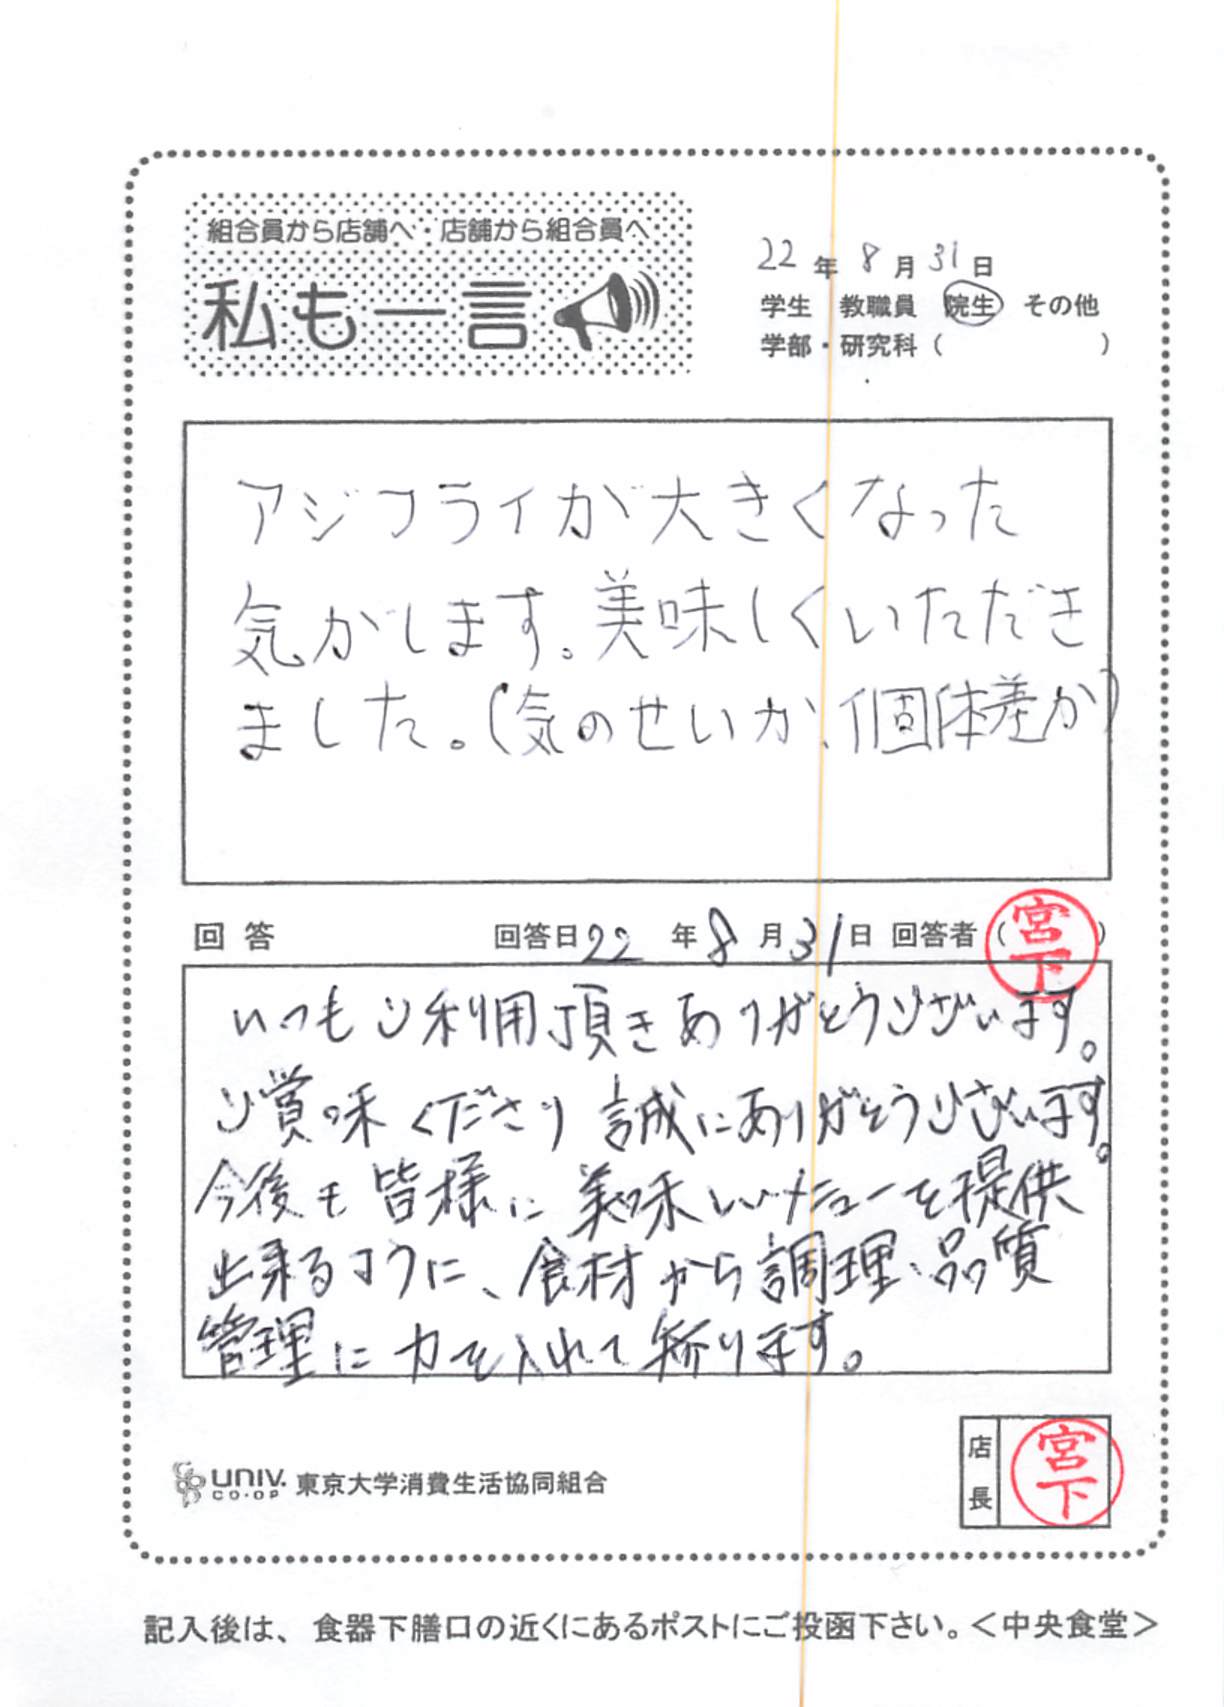 組合員から店舗へ・店舗から組合員へ
私も一言
22年8月31日
学生 教職員 院生 その他
学部・研究科（ ）
アジフライが大きくなった
気がします。美味しくいただき
ました。(気のせいか、個体差か)
回答 回答日22年8月31日 回答者（宮下）
いつもご利用頂きありがとうございます。
ご賞味くださり誠にありがとうございます。
今後も皆様に美味しいメニューを提供
出来るように、食材から調理、品質
管理に力を入れて参ります。
UNIV. CO-OP 東京大学消費生活協同組合
店長 宮下
記入後は、食器下膳口の近くにあるポストにご投函下さい。＜中央食堂＞